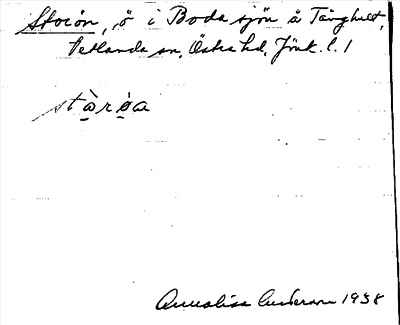 Storön, ö i Boda sjön å Tånghult,
Vetlanda sn, Östra hd, Jönk. l. 1
stàrøa
Annalisa Anderson 1938